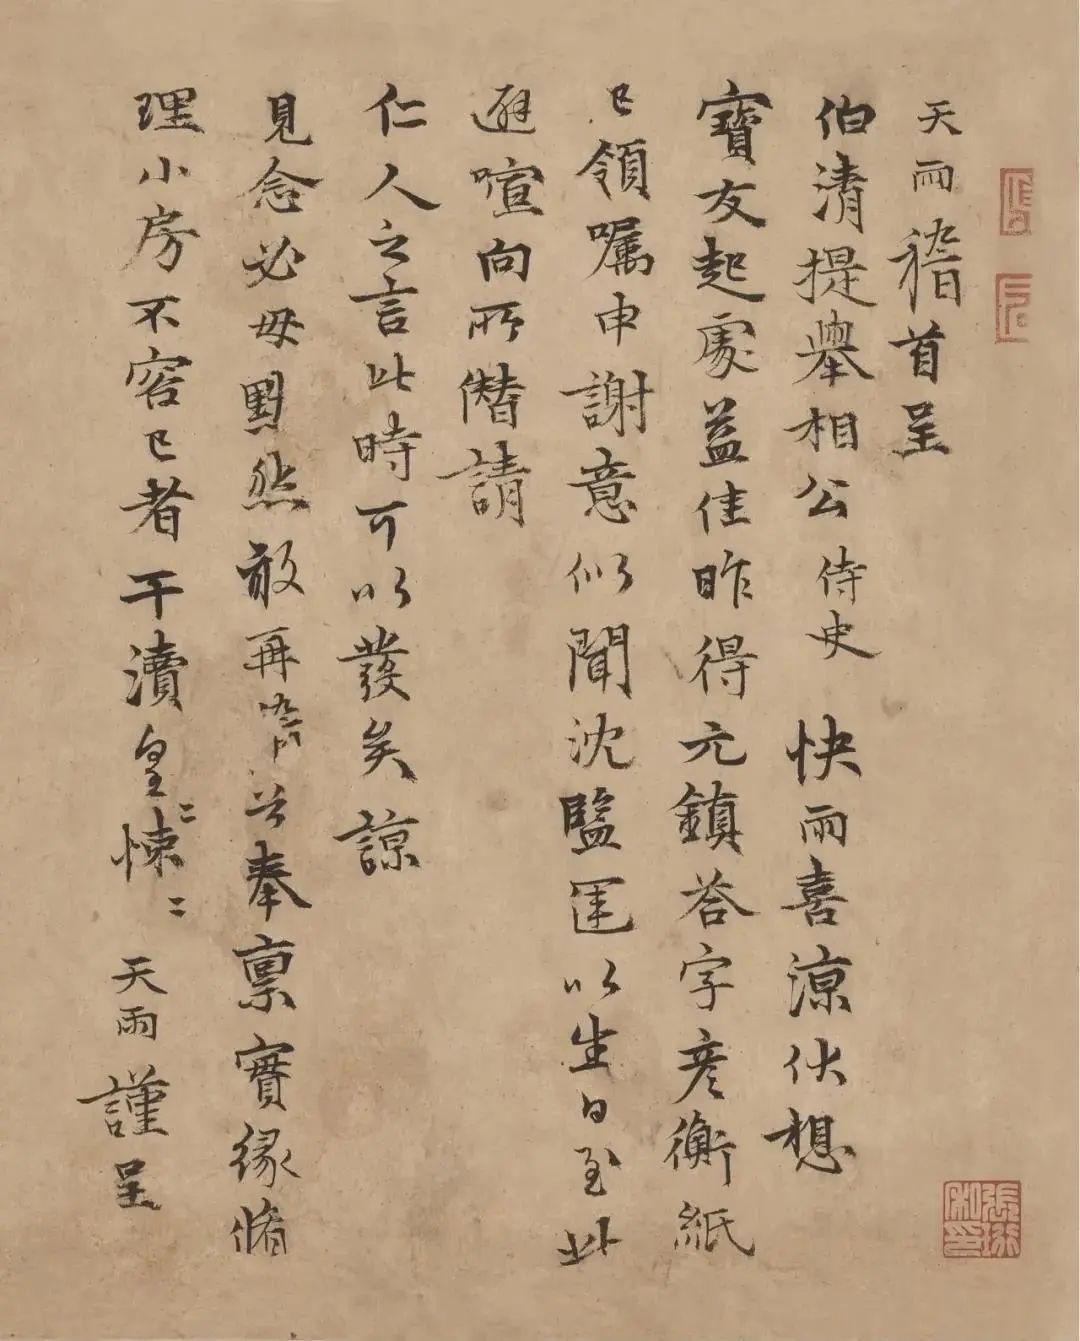 天雨稽首呈
伯清提舉相公侍史 快雨喜涼伏想
寶友起處益佳昨得元鎮荅字彦衡紙
已領囑申謝意似聞沈監運以生日至此
避喧向所僭請
仁人之言此時可以發矣諒
見念必毋黙然敢再瀆奉稟實緣脩
理小房不容已者干瀆皇〻悚〻 天雨謹呈